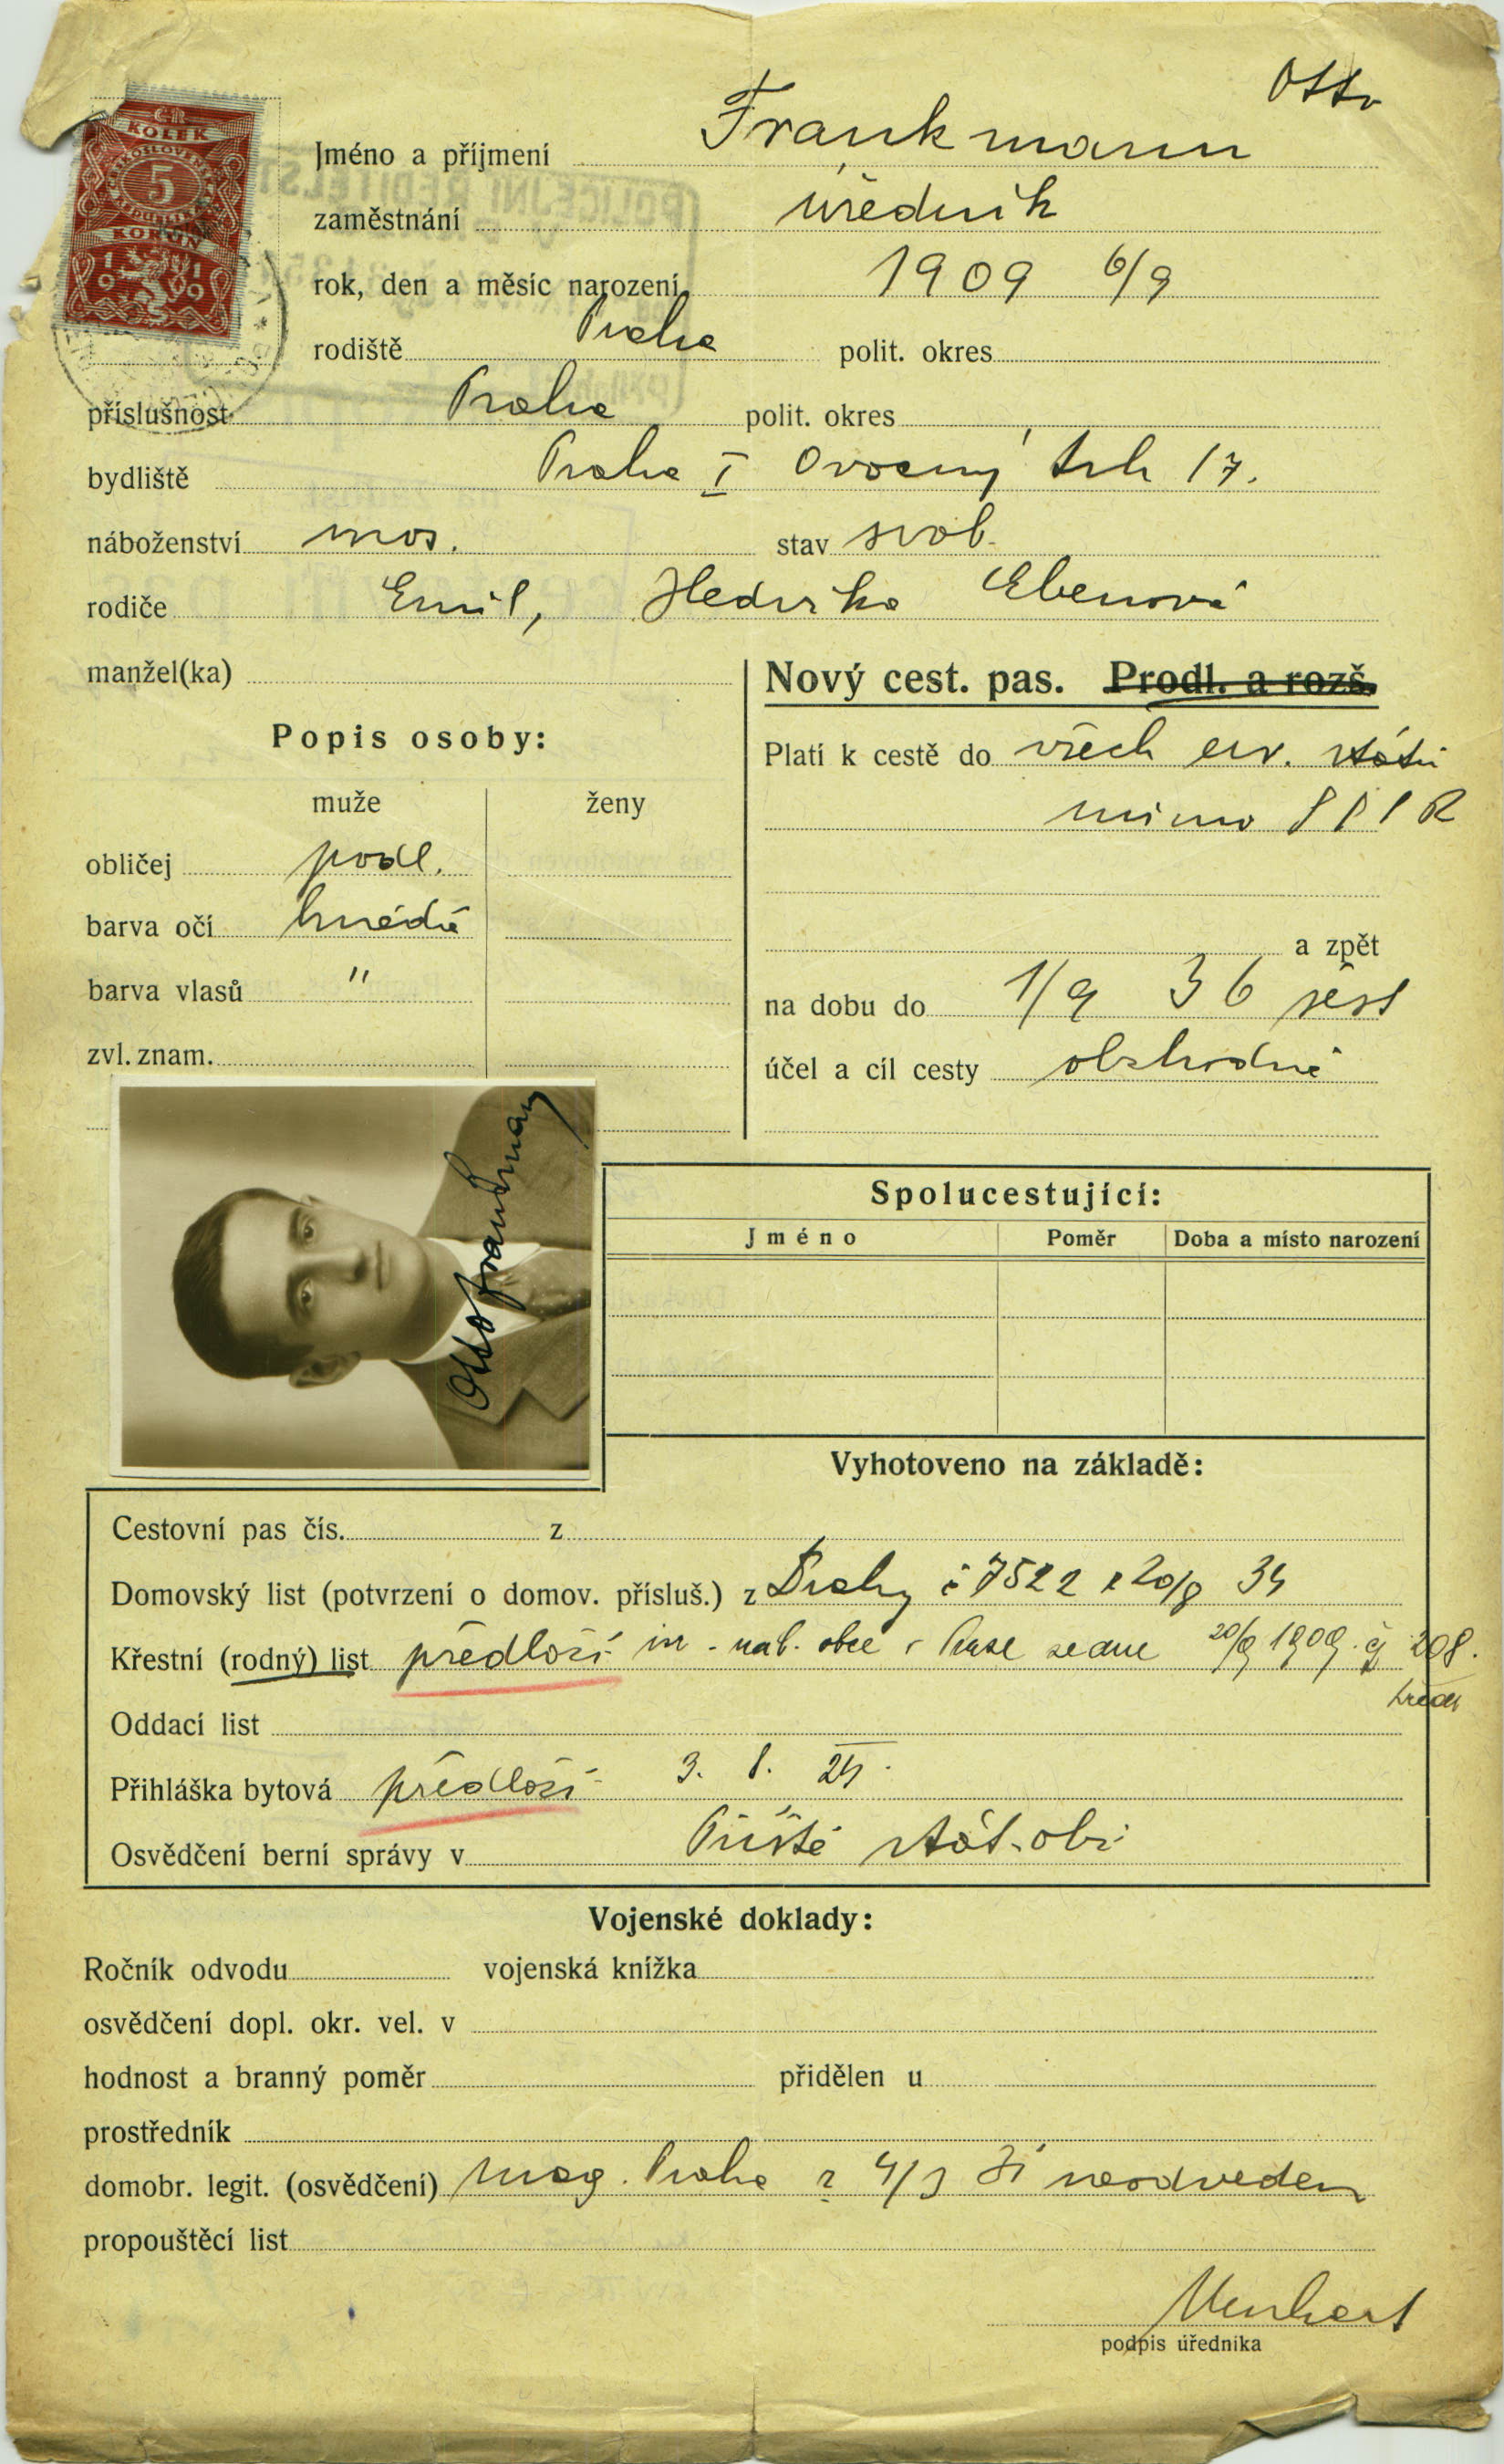 Otto
Jméno a příjmení Frankmann
zaměstnání úředník
rok, den a měsíc narození 1909 6/9
rodiště Praha polit. okres
příslušnost Praha polit. okres
bydliště Praha I Ovocný trh 17.
náboženství mos. stav svob.
rodiče Emil, Hedvika Ebenová
manžel(ka)
Nový cest. pas. Prodl. a rozš.
Popis osoby:
muže ženy
obličej podl.
barva očí hnědá
barva vlasů "
zvl. znam.
Platí k cestě do všech ev. států
mimo SSSR
a zpět
na dobu do 1/9 36 šest
účel a cíl cesty obchodní
Otto Frankmann
Spolucestující:
Jméno Poměr Doba a místo narození
Vyhotoveno na základě:
Cestovní pas čís. z
Domovský list (potvrzení o domov. přísluš.) z Prahy č 7522 z 20/8 34
Křestní (rodný) list předloží nab. obce v Praze ze dne 20/9 1909. čj 208.
Oddací list
Přihláška bytová předloží 3. 8. 24.
Osvědčení berní správy v Příště stát. obč
Vojenské doklady:
Ročník odvodu vojenská knížka
osvědčení dopl. okr. vel. v
hodnost a branný poměr přidělen u
prostředník
domobr. legit. (osvědčení) mag. Praha z 4/3 31 neodveden
propouštěcí list
podpis úředníka
ČR
KOLEK
5
KORUN
1919